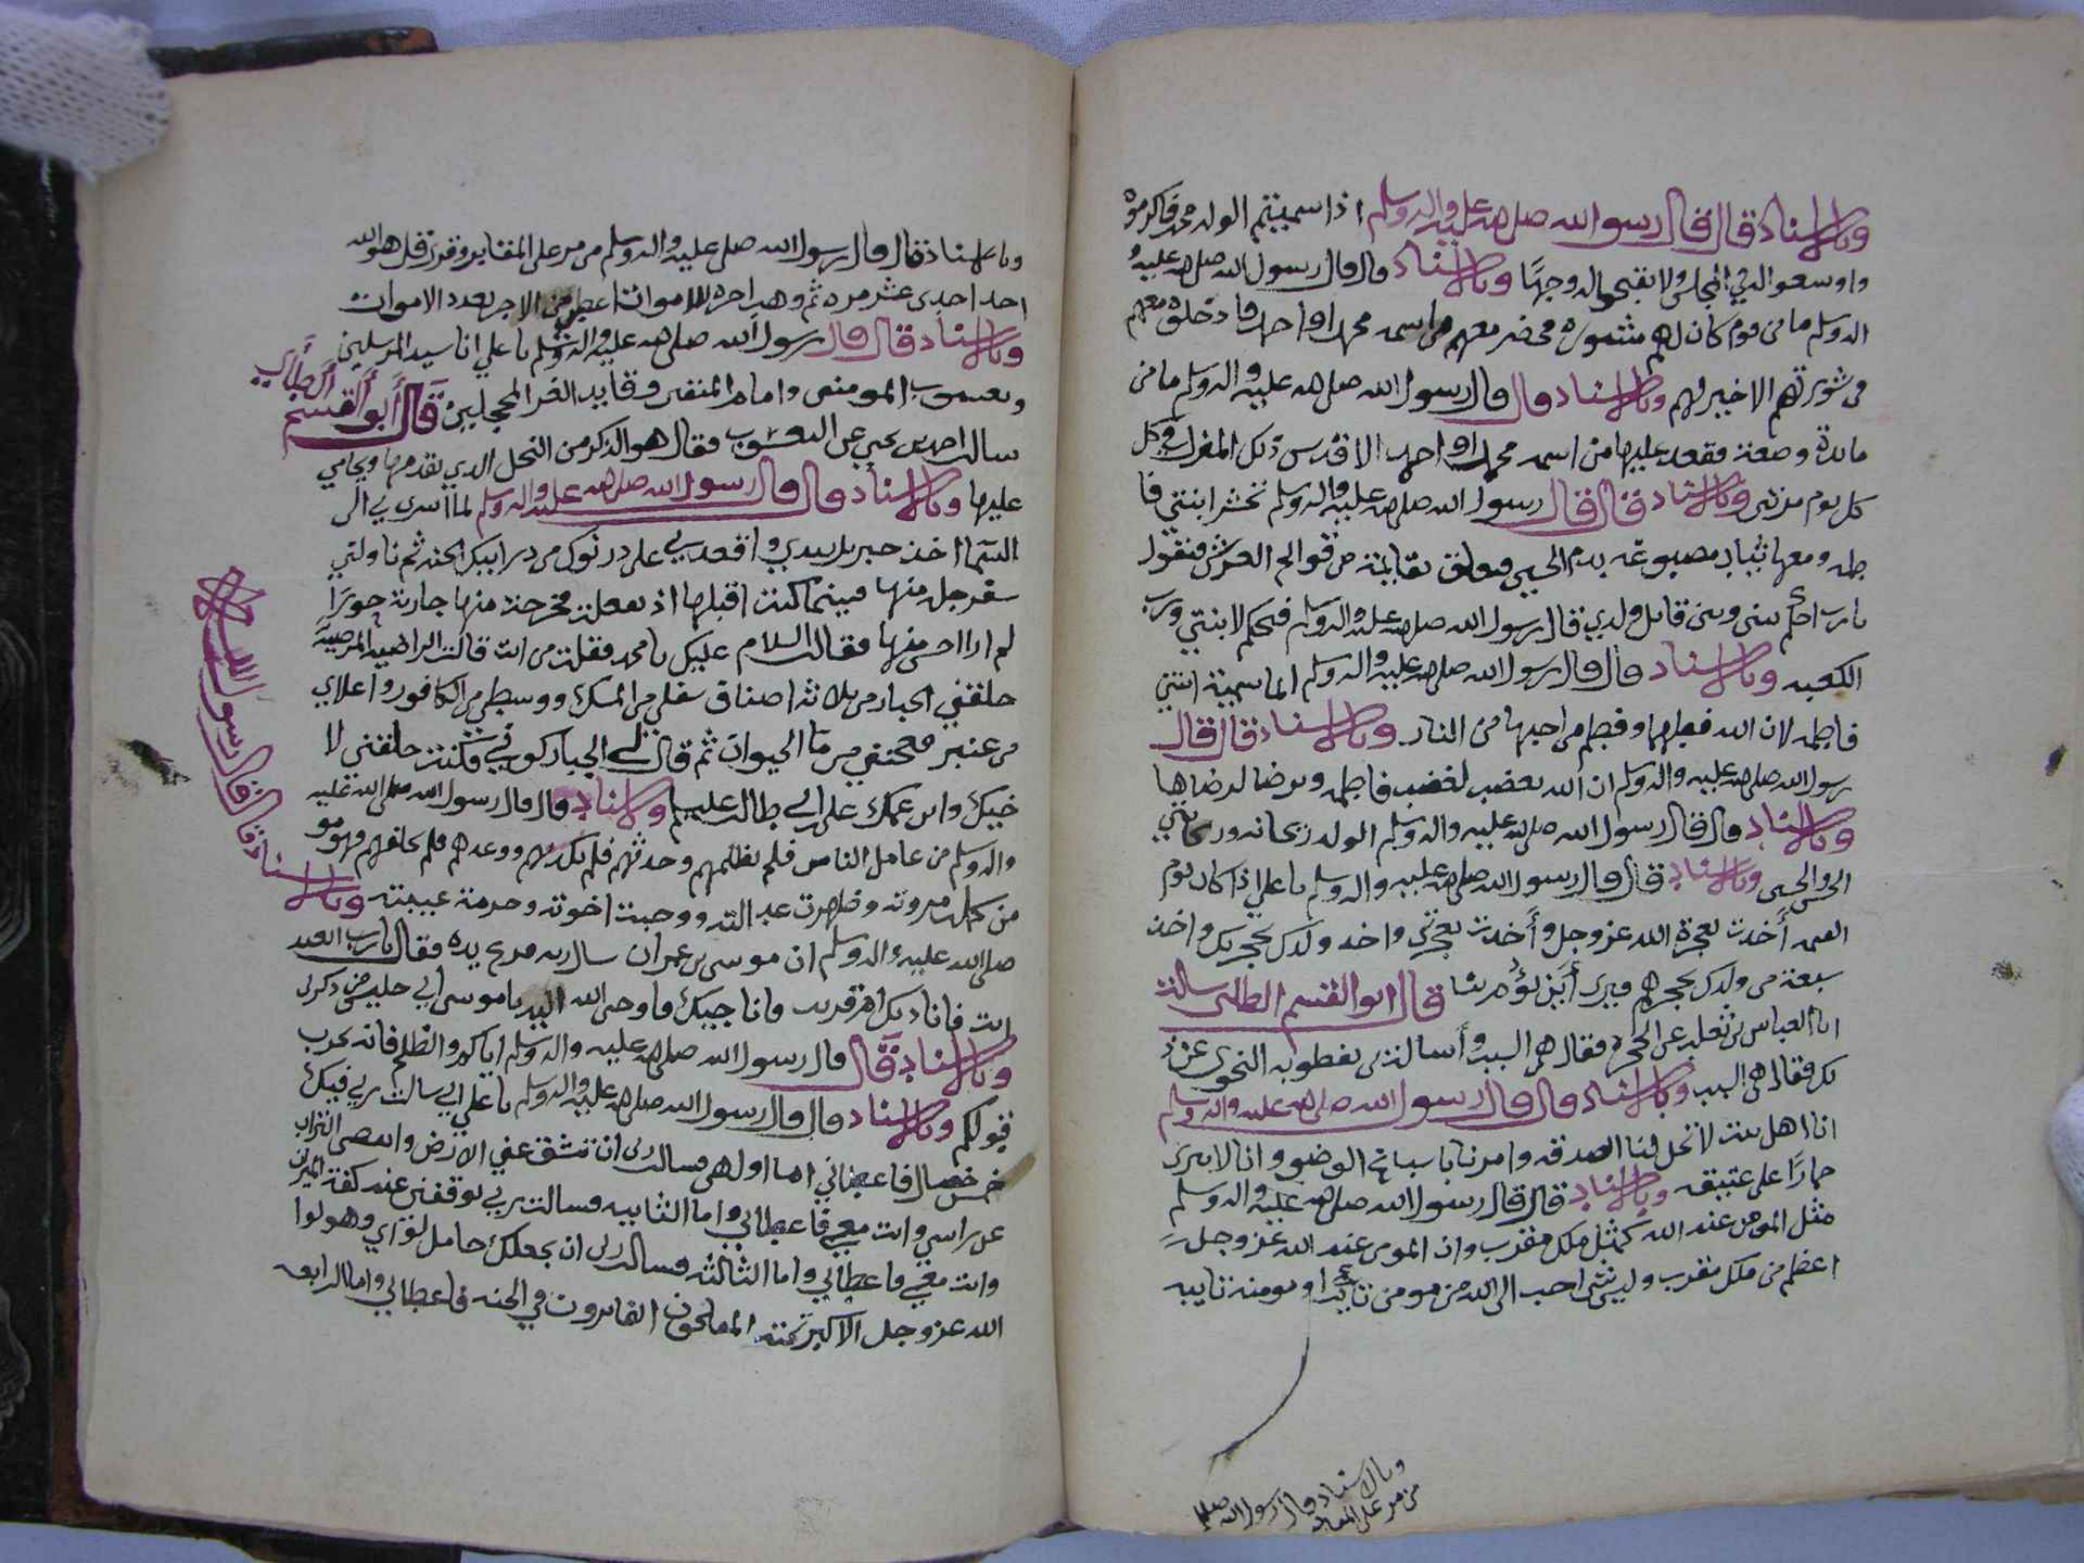 وبالاسناد قال قال رسول الله صلى الله عليه واله وسلم اذا سميتم الولد محمد فاكرموه
واوسعوا له في المجلس ولا تقبحوا له وجها وبالاسناد قال قال رسول الله صلى الله عليه
اله وسلم ما من قوم كان لهم مشورة فحضر معهم من اسمه محمد او احمد فادخلوه معهم
في مشورتهم الا خير لهم وبالاسناد قال قال رسول الله صلى الله عليه واله وسلم ما من
مايدة وضعة فقعد عليها من اسمه محمد او احمد الا قدس ذلك المنزل في كل
كل يوم مرتين وبالاسناد قال قال رسول الله صلى الله عليه واله وسلم تحشر ابنتي فا
طمه ومعها ثياب مصبوغه بدم الحسين فتعلق بقايمة من قوايم العرش فتقول
يارب احكم بيني وبين قاتل ولدي قال رسول الله صلى الله عليه واله وسلم فيحكم لابنتي ورب
الكعبه وبالاسناد قال قال رسول الله صلى الله عليه واله وسلم انما سمية ابنتي
فاطمه لان الله فطمها وفطم من احبها من النار وبالاسناد قال قال
رسول الله صلى الله عليه واله وسلم ان الله يغضب لغضب فاطمه ويرضا لرضاها
وبالاسناد قال قال رسول الله صلى الله عليه واله وسلم الولد ريحانه وريحانتي
الحسن والحسين وبالاسناد قال قال رسول الله صلى الله عليه واله وسلم يا علي اذا كان يوم
القيمه أخذت بحجزة الله عز وجل وأخذت بحجزتي واخذ ولدك بحجزتك واخذ
شيعة من ولدك بحجزهم فترى أين يؤمر بنا قال ابو القسم الطائي سالت
ابا العباس بن ثعلب عن الحجزة فقال هي السبب وأسالت بن نفطويه النحوي عن ذ
لك فقال هي السبب وبالاسناد قال قال رسول الله صلى الله عليه واله وسلم
انا اهل بيت لا تحل لنا الصدقه وامرنا باسباغ الوضو وانا لا ننزى
حمارا على عتيقه وبالاسناد قال قال رسول الله صلى الله عليه واله وسلم
مثل المومن عند الله كمثل ملك مقرب وان المومن عند الله عز وجل
اعظم من ملك مقرب وليس شي احب الى الله من مومن تايب او مومنه تايبه
وبالاسناد قال رسول الله صلعم
من مر على المقابر
وبالاسناد قال قال رسول الله صلى الله عليه واله وسلم من مر على المقابر وقرا قل هو الله
احد احدى عشر مره ثم وهب اجره للاموات اعطي من الاجر بعدد الاموات
وبالاسناد قال قال رسول الله صلى الله عليه واله وسلم يا علي انا سيد المرسلين
ويعسوب المومنين وامام المتقين وقايد الغر المحجلين قال أبو القسم الطائي
سالت احمد بن يحيى عن اليعسوب فقال هو الذكر من النحل الدي يقدمها ويحامي
عليها وبالاسناد قال قال رسول الله صلى الله عليه واله وسلم لما اسري بي الى
السما اخذ جبريل بيدي واقعدني على درنوك من درانيك الجنه ثم ناولني
سفرجلة منها فبينما كنت اقبلها اذ انفلقت فخرجت منها جارية حورا
لم ارا احسن منها فقالت السلام عليك يا محمد فقلت من انت قالت الراضيه المرضيه
خلقني الجبار من ثلاثه اصناف سفلي من المسك ووسطي من الكافور واعلاي
من عنبر فعجنني من ما الحيوان ثم قال لي الجبار كوني فكنت خلقني لا
خيك وابن عمك علي ابن ابي طالب عليهما وبالاسناد قال قال رسول الله صلى الله عليه
واله وسلم من عامل الناس فلم يظلمهم وحدثهم فلم يكذبهم ووعدهم فلم يخلفهم فهو مو
من كملت مروته وظهرت عدالته ووجبت اخوته وحرمة غيبته وبالاسناد قال قال رسول الله
صلى الله عليه واله وسلم ان موسى بن عمران سال ربه فرفع يده فقال يا رب ابعيد
انت فاناديك ام قريب فاناجيك فاوحى الله اليه يا موسى اني جليس من ذكرني
وبالاسناد قال قال رسول الله صلى الله عليه واله وسلم اياكم والظلم فانه يخرب
قيوبكم وبالاسناد قال قال رسول الله صلى الله عليه واله وسلم يا علي اني سالت ربي فيك
خمس خصال فاعطاني اما اولهن فسالت ربي ان تنشق عني الارض وانفض التراب
عن راسي وانت معي فاعطاني واما الثانيه فسالت ربي يوقفني عند كفة الميزان
وانت معي فاعطاني واما الثالثه فسالت ربي ان يجعلك حامل لواي وهو لوا
الله عز وجل الاكبر تحته المفلحون الفايزون في الجنه فاعطاني واما الرابعه